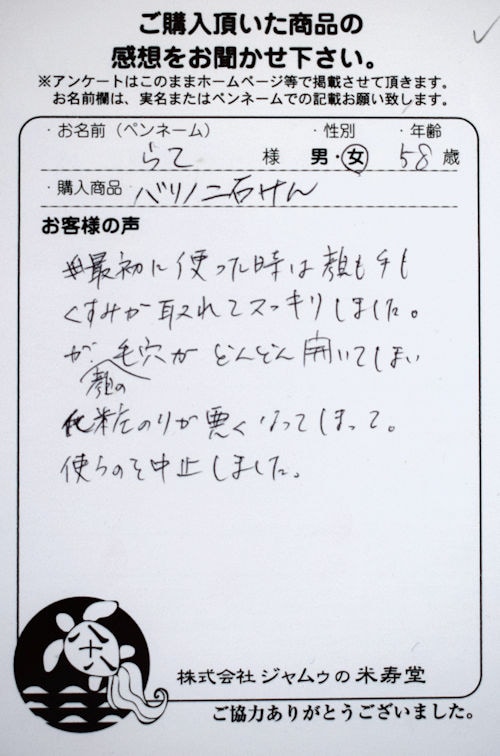 ご購入頂いた商品の
感想をお聞かせ下さい。
※アンケートはこのままホームページ等で掲載させて頂きます。
お名前欄は、実名またはペンネームでの記載お願い致します。
・お名前（ペンネーム） ・性別 ・年齢
らて 様 男・女 58 歳
・購入商品 バリノニ石けん
お客様の声
最初に使った時は顔も手も
くすみが取れてスッキリしました。
が 顔の毛穴がどんどん開いてしまい
化粧のりが悪くなってしまって。
使うのを中止しました。
八十八
株式会社 ジャムゥの米寿堂
ご協力ありがとうございました。